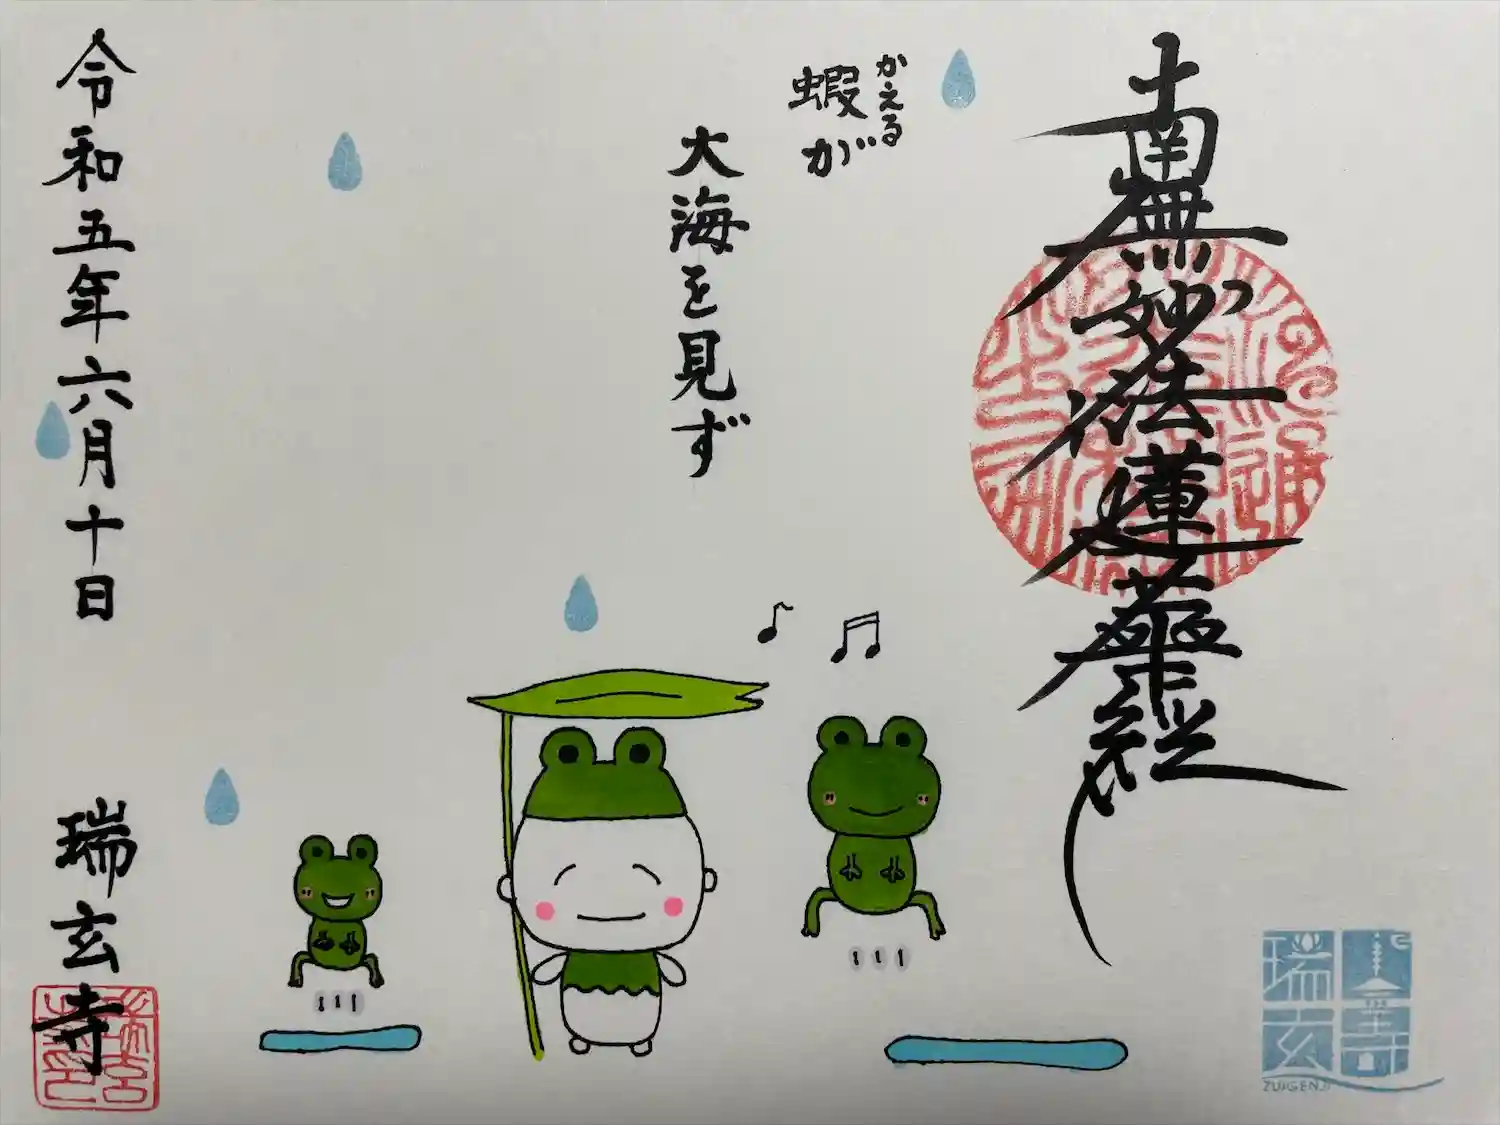 南無妙法蓮華経
かえる
蝦が
大海を見ず
令和五年六月十日
瑞玄寺
瑞玄寺
ZUIGENJI